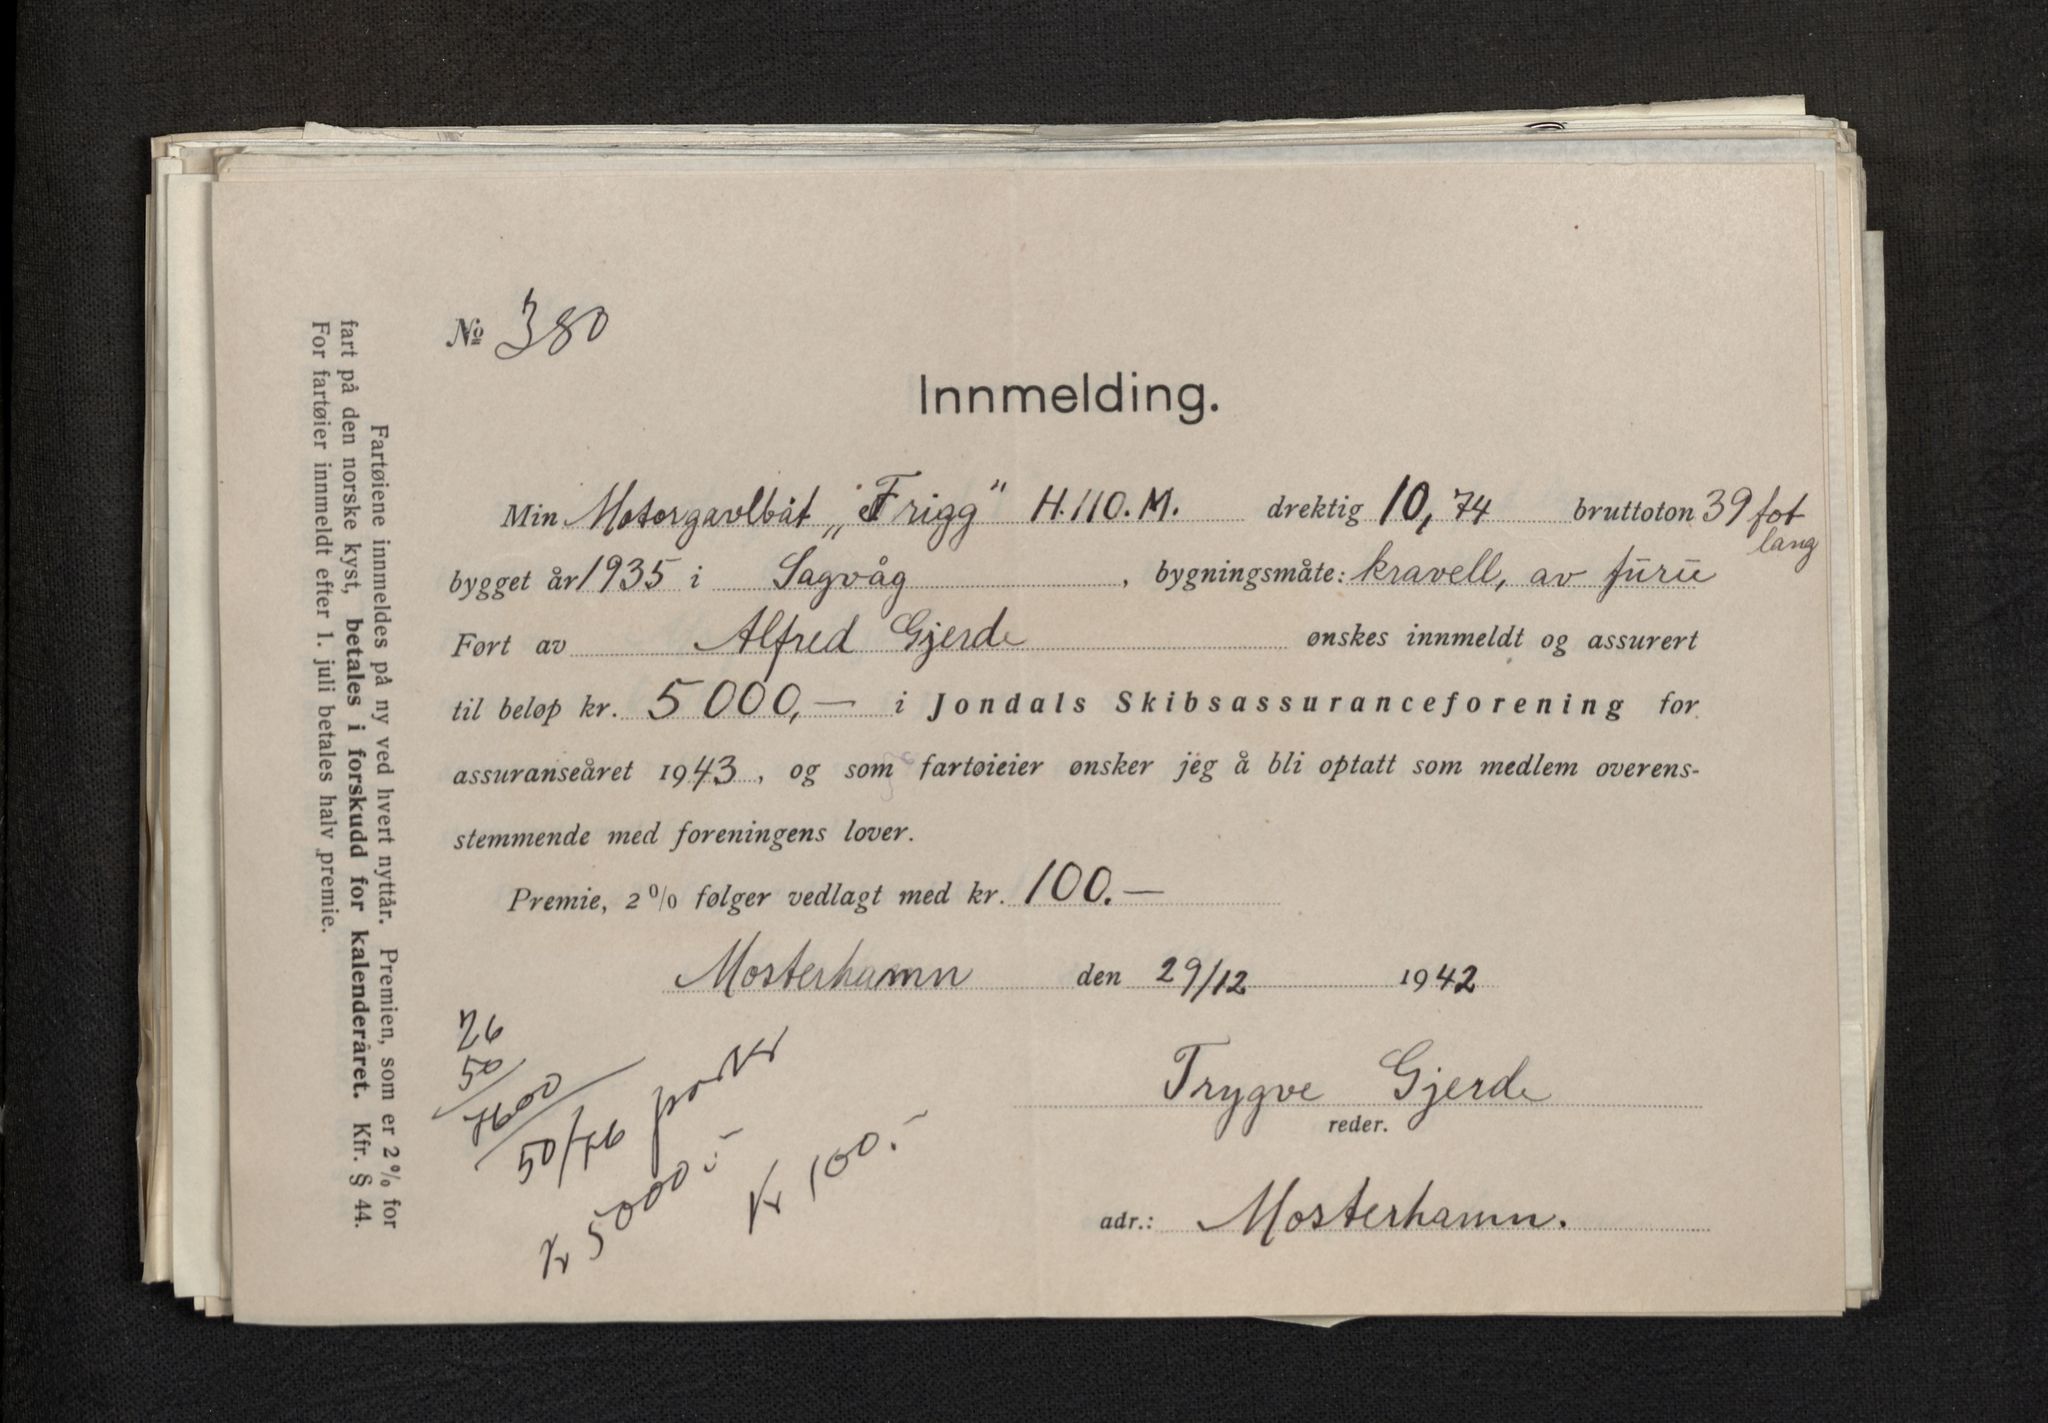 No 380
Innmelding.
Min Motorgavlbåt „Frigg“ H.110.M. drektig 10,74 bruttoton 39 fot
lang
bygget år 1935 i Sagvåg, bygningsmåte: kravell, av furu
Ført av Alfred Gjerde ønskes innmeldt og assurert
til beløp kr. 5000,— i Jondals Skibsassuranceforening for
assuranseåret 1943, og som fartøieier ønsker jeg å bli optatt som medlem overens-
stemmende med foreningens lover.
Premie, 2% følger vedlagt med kr. 100.—
Mosterhamn den 29/12 1942
Trygve Gjerde
reder.
adr.: Mosterhamn.
76
50
7600
50/76
Kr 5000.-
Kr 100.-
Fartøiene innmeldes på ny ved hvert nyttår. Premien, som er 2% for
fart på den norske kyst, betales i forskudd for kalenderåret. Kfr. § 44.
For fartøier innmeldt efter 1. juli betales halv premie.